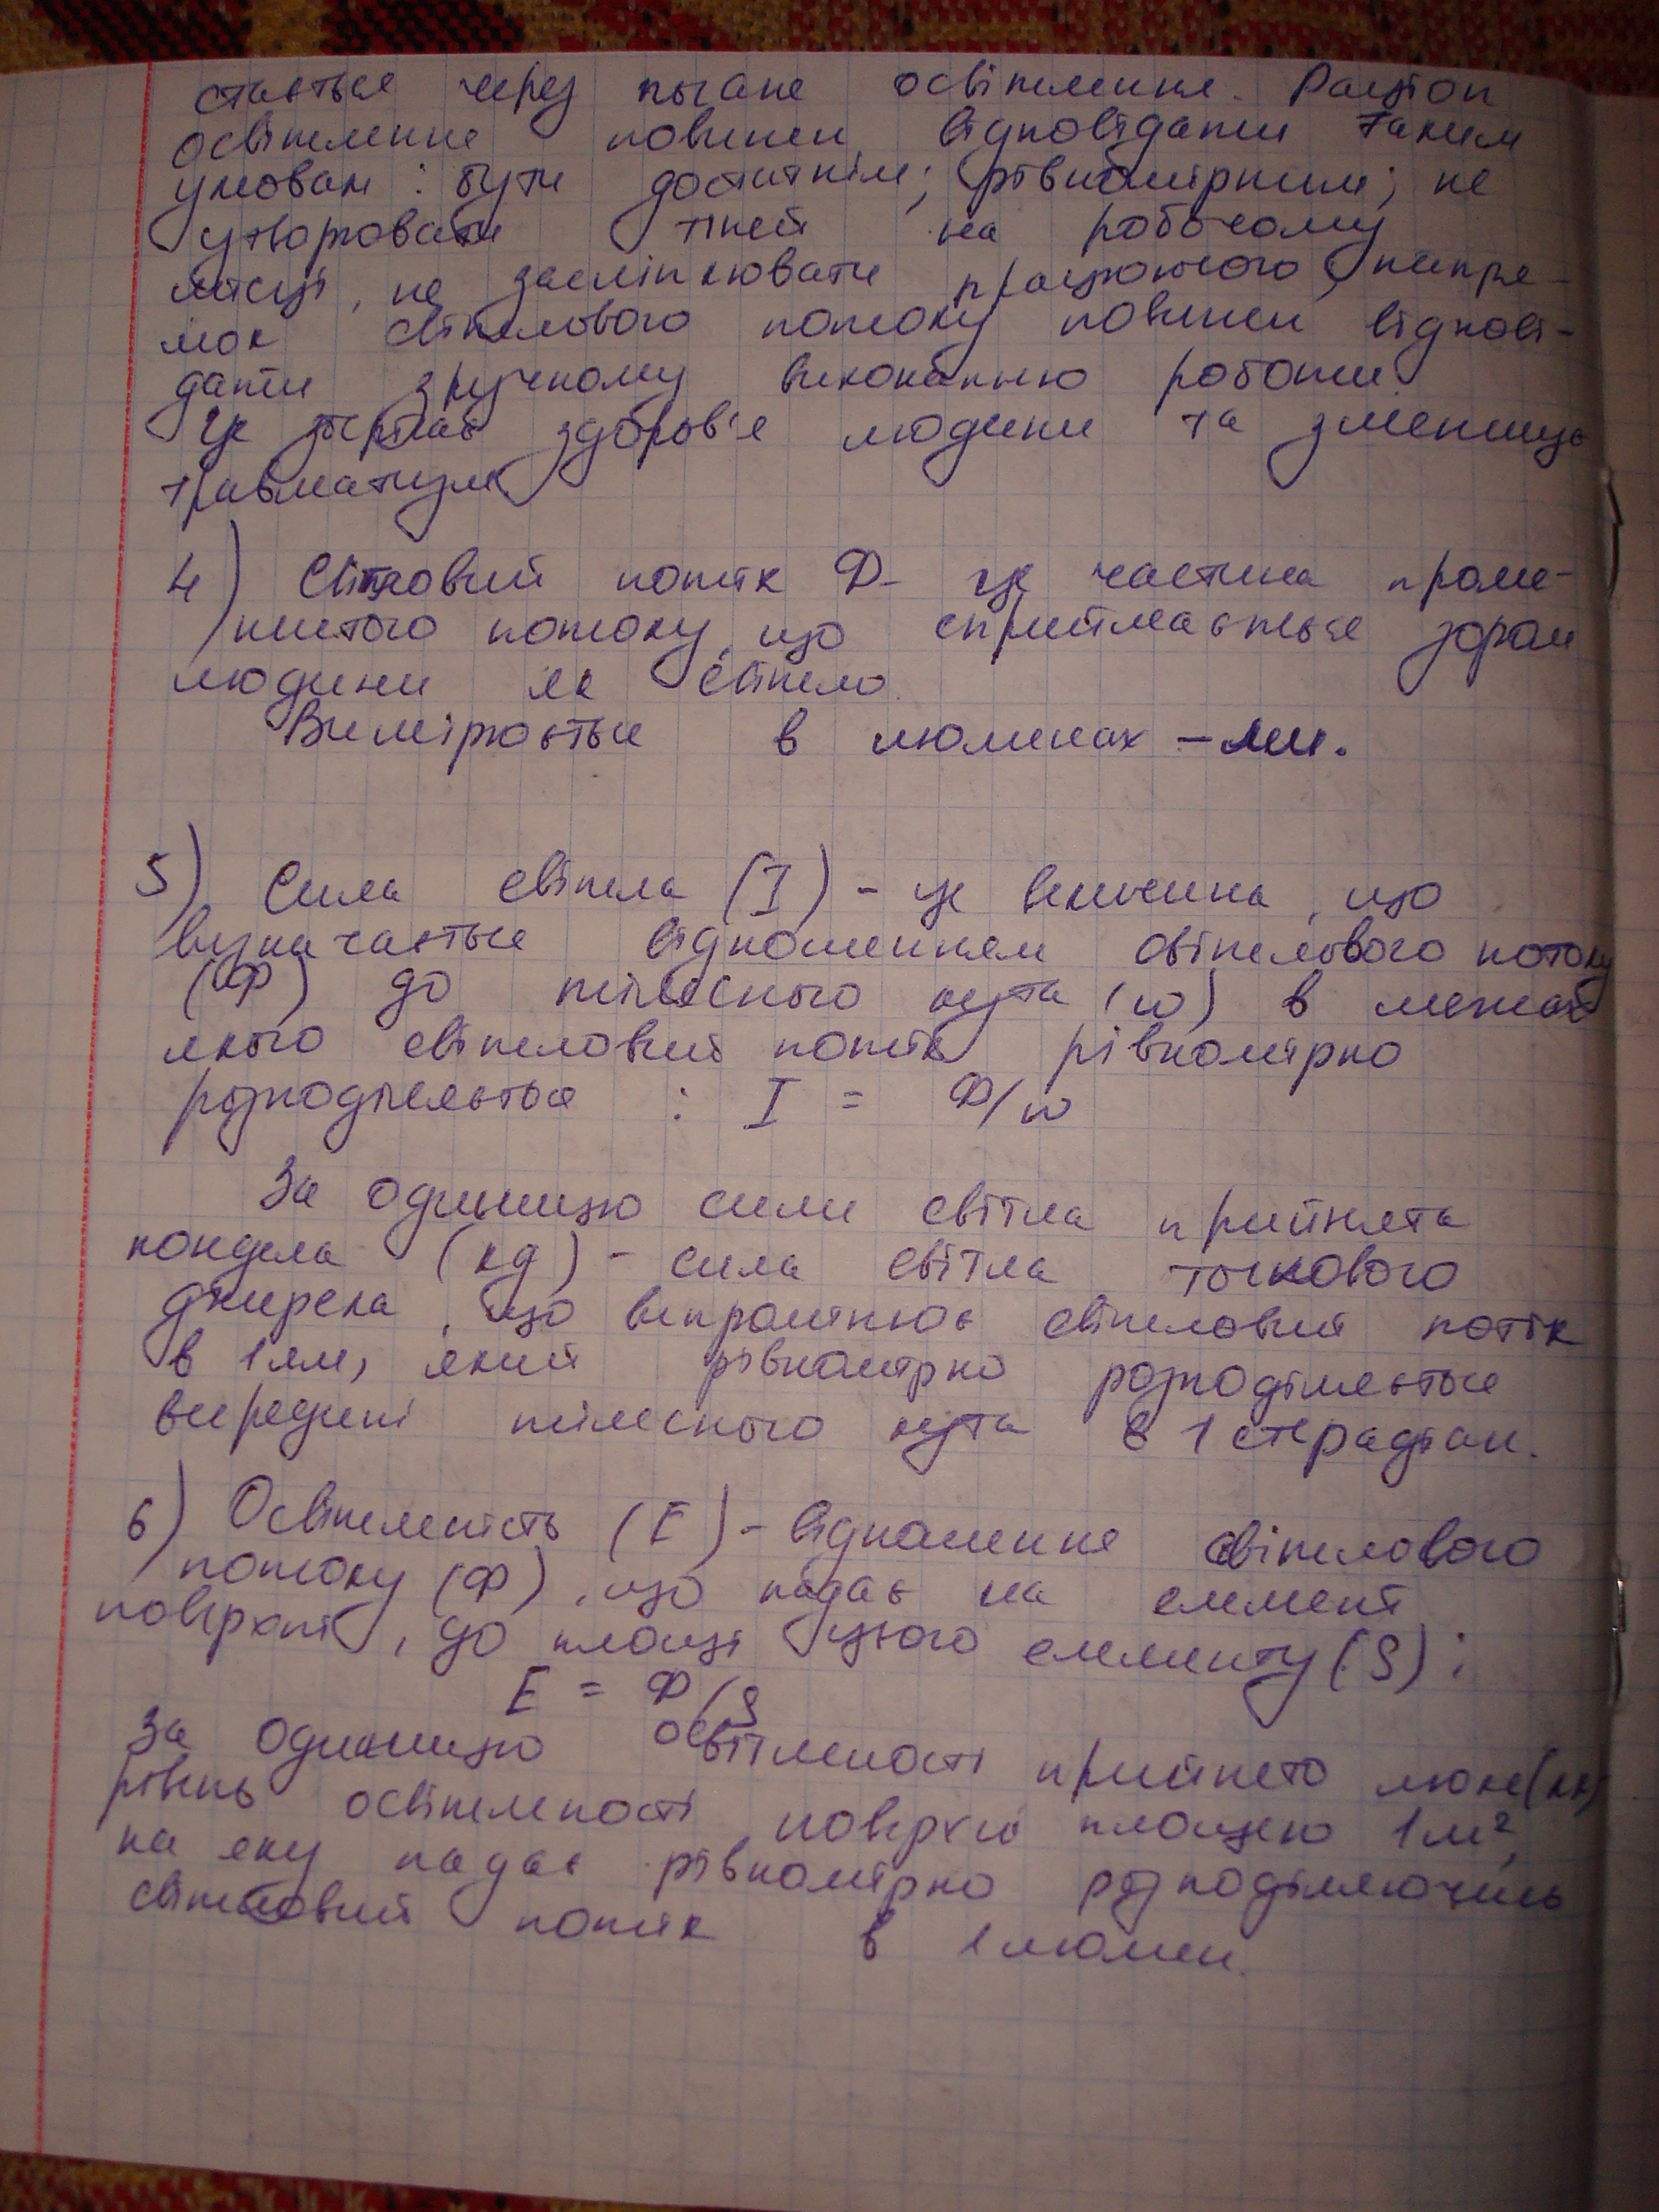 стається через погане освітлення. Раціон
освітлення повинен відповідати таким
умовам : бути достатнім; рівномірним; не
утворювати тіней на робочому
місці, не засліплювати працюючого, напря-
мок світлового потоку повинен відпові-
дати зручному виконанню роботи.
Це здоров'я людини та зменшує
травматизм
4) Світловий потік Ф - це частина проме-
нистого потоку, що сприймається зором
людини як світло.
Вимірюється в люменах - лм.
5) Сила світла (I) - це величина, що
визначається відношенням світлового потоку
(Ф) до тілесного кута (ω) в межах
якого світловий потік рівномірно
розподіляється : I = Ф/ω
За одиницю сили світла прийнята
кандела (кд) - сила світла точкового
джерела, що випромінює світловий потік
в 1лм, який рівномірно розподіляється
всередині тілесного кута в 1 стерадіан.
6) Освітленість (E) - відношення світлового
потоку (Ф), що падає на елемент
поверхні, до площі цього елементу (S) ;
E = Ф/S
За одиницю освітленості прийнято люкс(лк)
рівень освітленості поверхні площею 1м²,
на яку падає рівномірно розподіляючись
світловий потік в 1люмен.